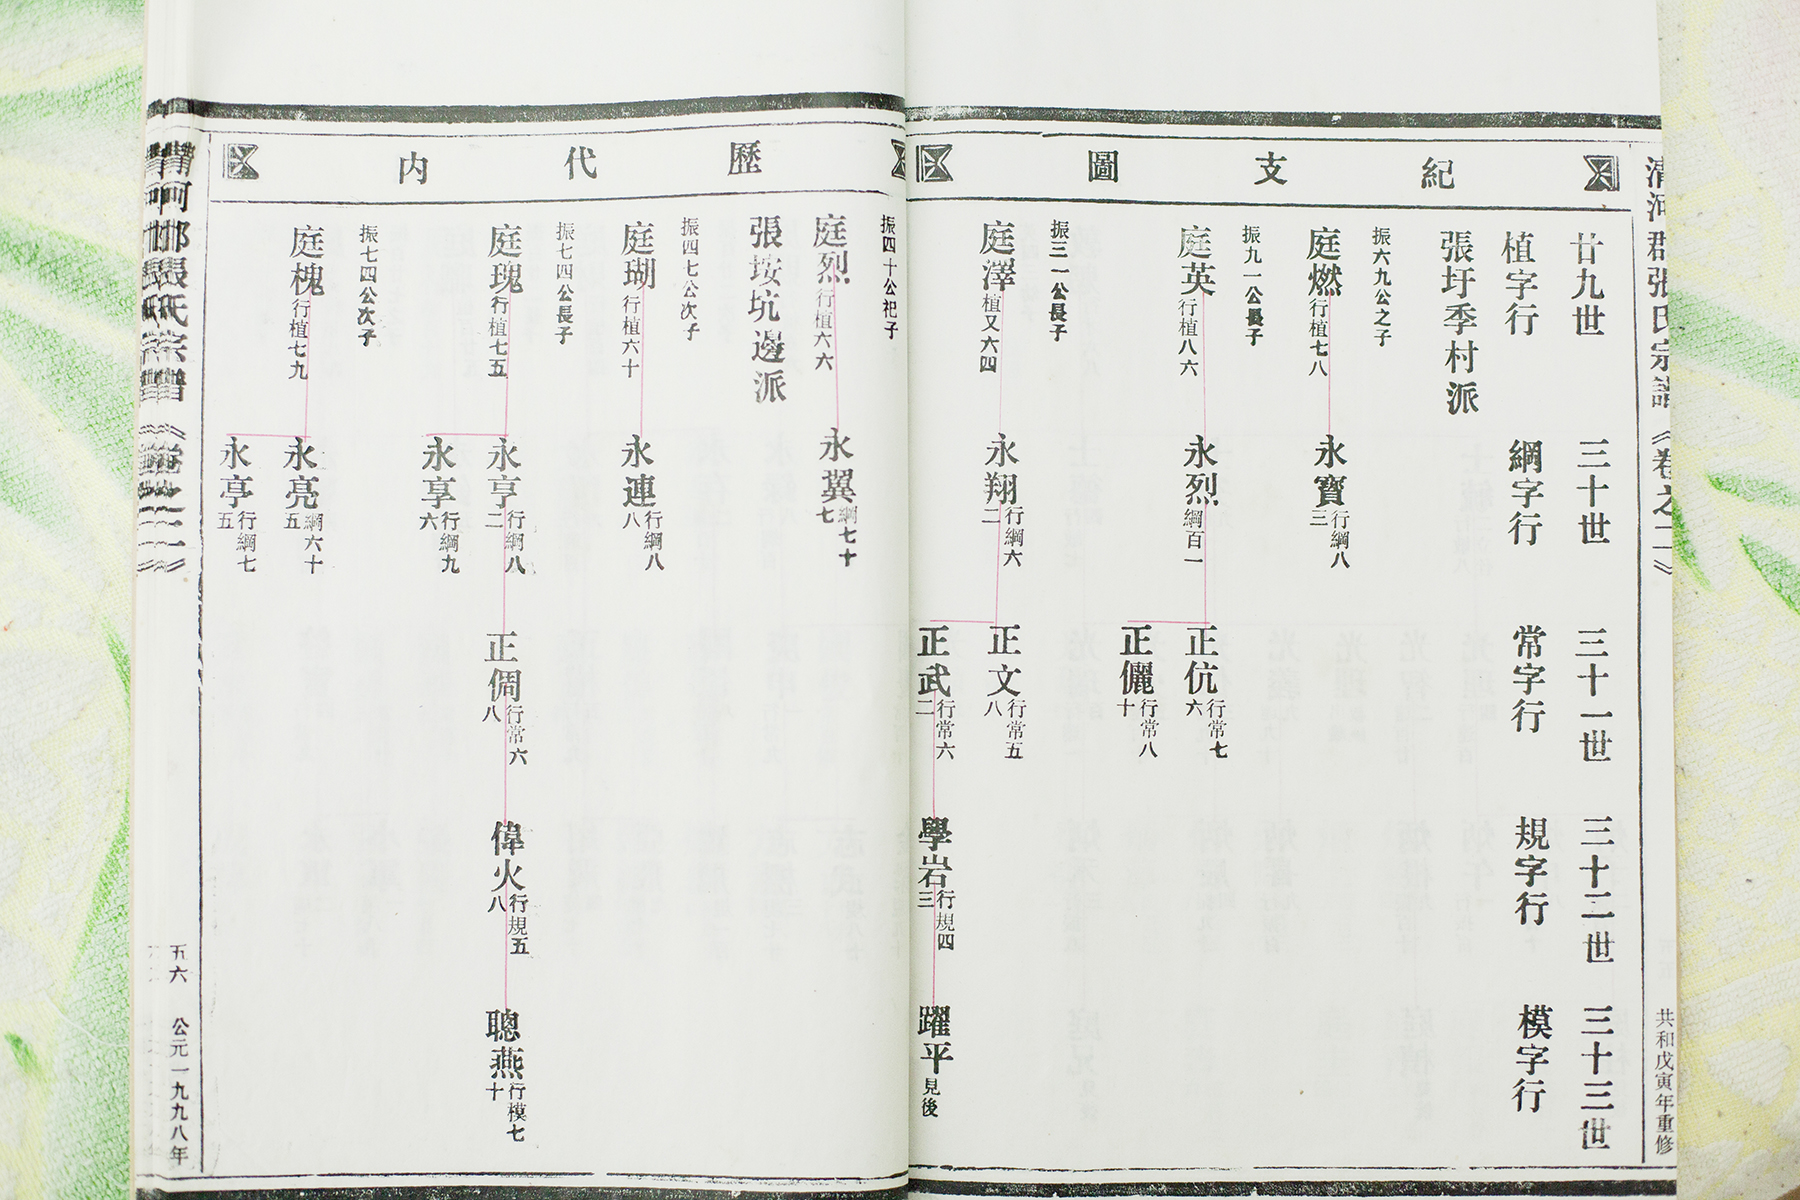 清河郡張氏宗譜《卷之二》
共和戊寅年重修
紀支圖
廿九世
三十世
三十一世
三十二世
三十三世
植字行
綱字行
常字行
規字行
模字行
張圩季村派
振六九公之子
庭燃行植七八
永寶行綱八三
振九一公長子
庭英行植八六
永烈綱百一
正伉行常七六
正儷行常八十
振三一公長子
庭澤植又六四
永翔行綱六二
正文行常五八
正武行常六二
學岩行規四三
躍平見後
歷代內
振四十公祀子
庭烈行植六六
永翼綱七十七
張垵坑邊派
振四七公次子
庭瑚行植六十
永連行綱八八
振七四公長子
庭瑰行植七五
永亨行綱八二
永享行綱九六
正倜行常六八
偉火行規五八
聰燕行模七十
振七四公次子
庭槐行植七九
永亮綱六十五
永亭行綱七五
清河郡張氏宗譜《卷之二》
五六
公元一九九八年